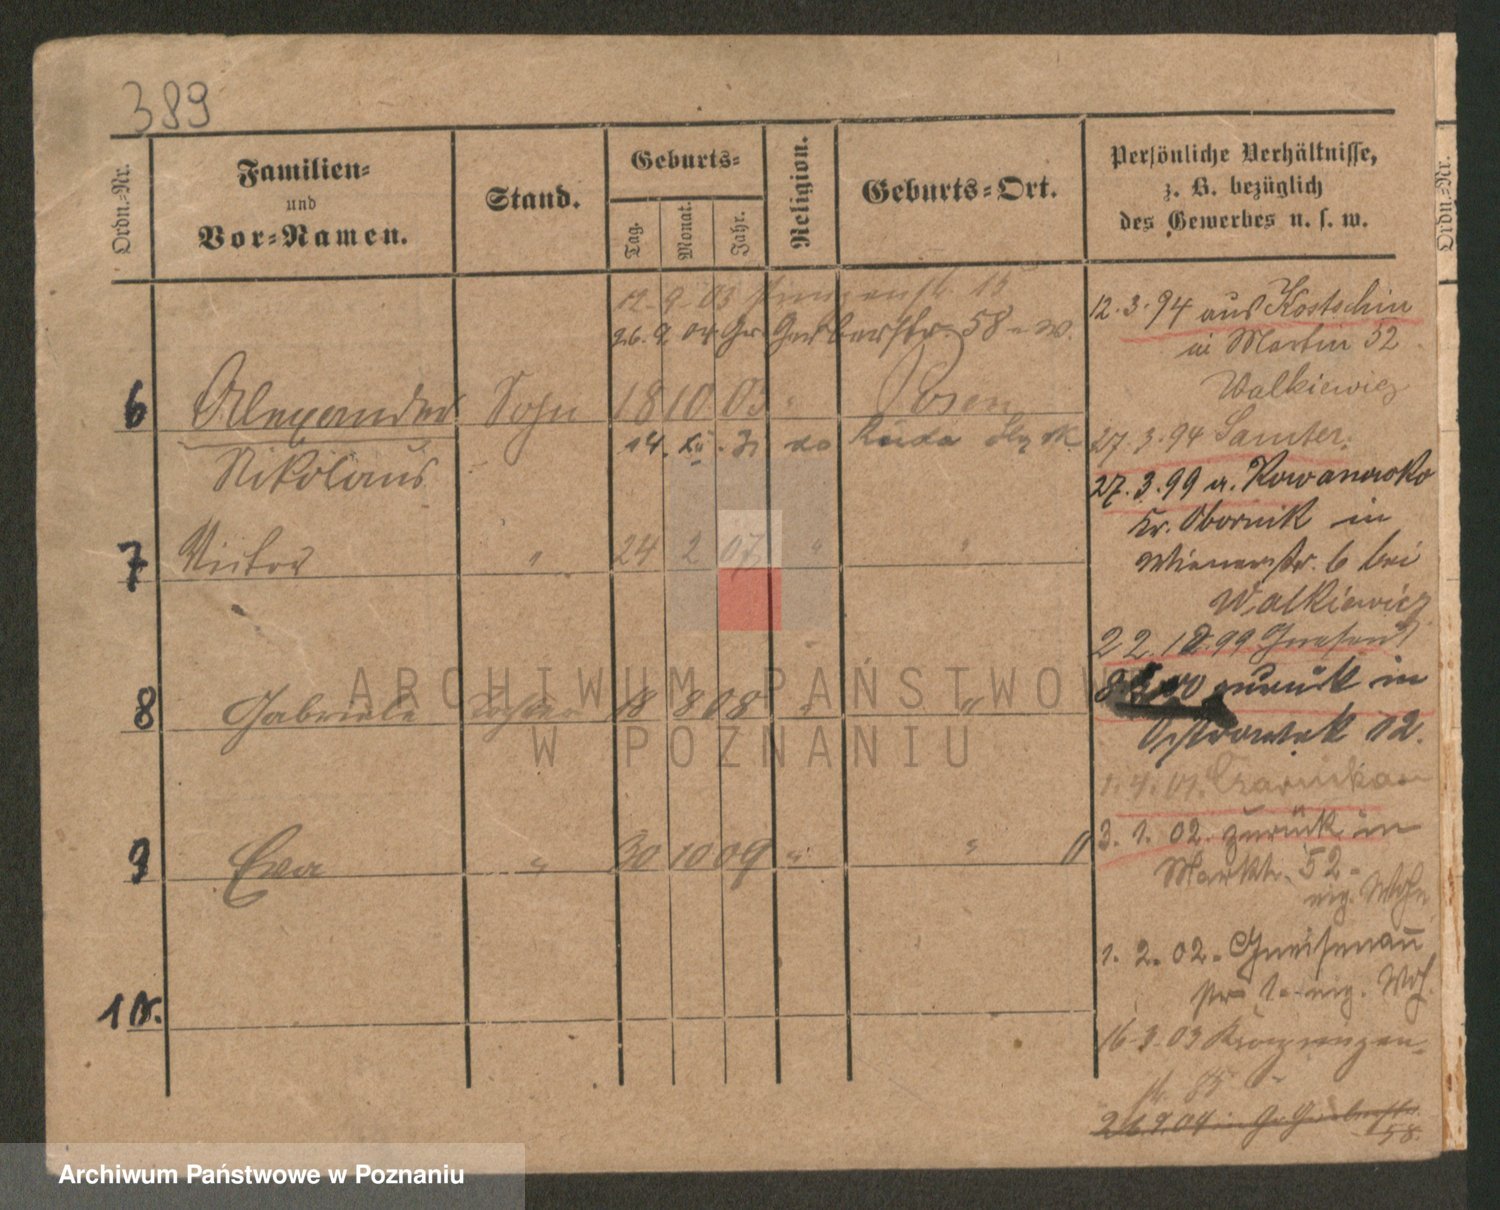 389
Ordn.-Nr.
Familien-
und
Vor-Namen.
Stand.
Geburts-
Tag.
Monat.
Jahr.
Religion.
Geburts-Ort.
Persönliche Verhältnisse,
z. B. bezüglich
des Gewerbes u. s. w.
Ordn.-Nr.
12-9-03 15
26.9.04 Gr. Gerberstr. 58 - W.
6 Alexander Sohn 18 10 03 " Posen
Nikolaus
14. do Ruda
7 Victor " 24 2 07 " "
8 Gabriele 18 8 08 " "
9 Ewa " 30 10 09 " "
10.
12.3.94 aus Kostschin
in Martin 52
Walkiewicz
27.3.94 Samter.
27.3.99 a. Kowanowko
Kr. Obornik in
Wienerstr. 6 bei
Walkiewicz
22.10.99 Gnesen
zurück in
Ostrowek 12.
1.4.01. Czarnikau
3.1.02. zurück in
Markt. 52 -
eig. Wohn
1.2.02. Gneisenau
str 1. eig. Woh.
16-3-03 Kronprinzen-
str. 85
26.9.04 in Gr. Gerberstr.
58.
ARCHIWUM PAŃSTWOWE
W POZNANIU
Archiwum Państwowe w Poznaniu